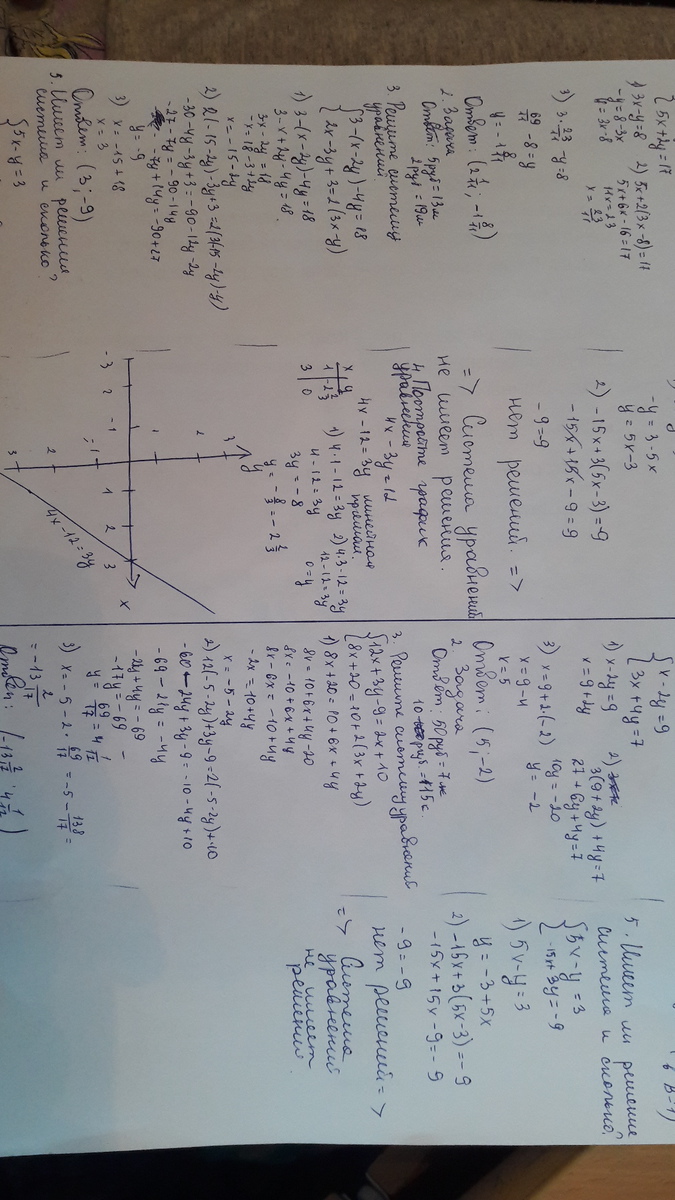 {5x+2y=17
1) 3x-y=8
-y=8-3x
y=3x-8
2) 5x+2(3x-8)=17
5x+6x-16=17
11x=23
x=23/11
3) 3·23/11-y=8
69/11-8=y
y=-1 8/11
Ответ: (2 1/11; -1 8/11)
2. Задача
Ответ: 5руб=13м
2руб=19м
3. Решите систему
уравнений
{3-(x-2y)-4y=18
{2x-3y+3=2(3x-y)
1) 3-(x-2y)-4y=18
3-x+2y-4y=18
-x=18-3+2y
x=-15-2y
2) 2(-15-2y)-3y+3=2(3(-15-2y)-y)
-30-4y-3y+3=-90-12y-2y
-27-7y=-90-14y
-7y+14y=-90+27
y=-9
3) x=-15+18
x=3
Ответ: (3;-9)
5. Имеет ли решения
система и сколько?
{5x-y=3
-y=3-5x
y=5x-3
2) -15x+3(5x-3)=9
-15x+15x-9=9
-9=9
нет решений. =>
=> Система уравнений
не имеет решения.
4. Постройте график
уравнения 4x-3y=12
4x-12=3y линейная
прямая.
x y
1 -2 2/3
3 0
1) 4·1-12=3y
4-12=3y
3y=-8
y=-8/3=-2 2/3
2) 4·3-12=3y
12-12=3y
0=y
y
3
2
1
-3
2
-1
1
2
3
x
-1
2
3
4x-12=3y
{x-2y=9
{3x+4y=7
1) x-2y=9
x=9+2y
2) 3(9+2y)+4y=7
27+6y+4y=7
10y=-20
y=-2
3) x=9+2·(-2)
x=9-4
x=5
Ответ: (5;-2)
2. Задача
Ответ: 50руб=7
10 руб.=115
3. Решите систему уравнений
{12x+3y-9=2x+10
{8x+20=10+2(3x+2y)
1) 8x+20=10+6x+4y
8x=10+6x+4y-20
8x=-10+6x+4y
8x-6x=-10+4y
-2x=10+4y
x=-5-2y
2) 12(-5-2y)+3y-9=2(-5-2y)+10
-60-24y+3y-9=-10-4y+10
-69-21y=-4y
-21y+4y=-69
-17y=-69
y=69/17=4 1/17
3) x=-5-2·69/17=-5-138/17=
=-13 2/17
Ответ: (-13 2/17; 4 1/17)
6 B=1)
5. Имеет ли решение
система и сколько?
{5x-y=3
{-15x+3y=-9
1) 5x-y=3
y=-3+5x
2) -15x+3(5x-3)=-9
-15x+15x-9=-9
-9=-9
нет решений =>
=> Система
уравнений
не имеет
решений.